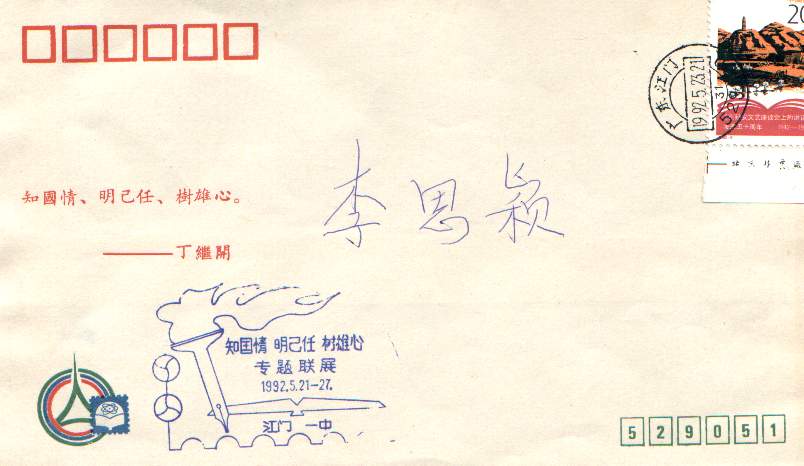 20
广东江门
1992.5.23.21
知國情、明己任、樹雄心。
——丁繼開
李思颖
知国情 明己任 树雄心
专题联展
1992.5.21-27.
江门 一中
529051